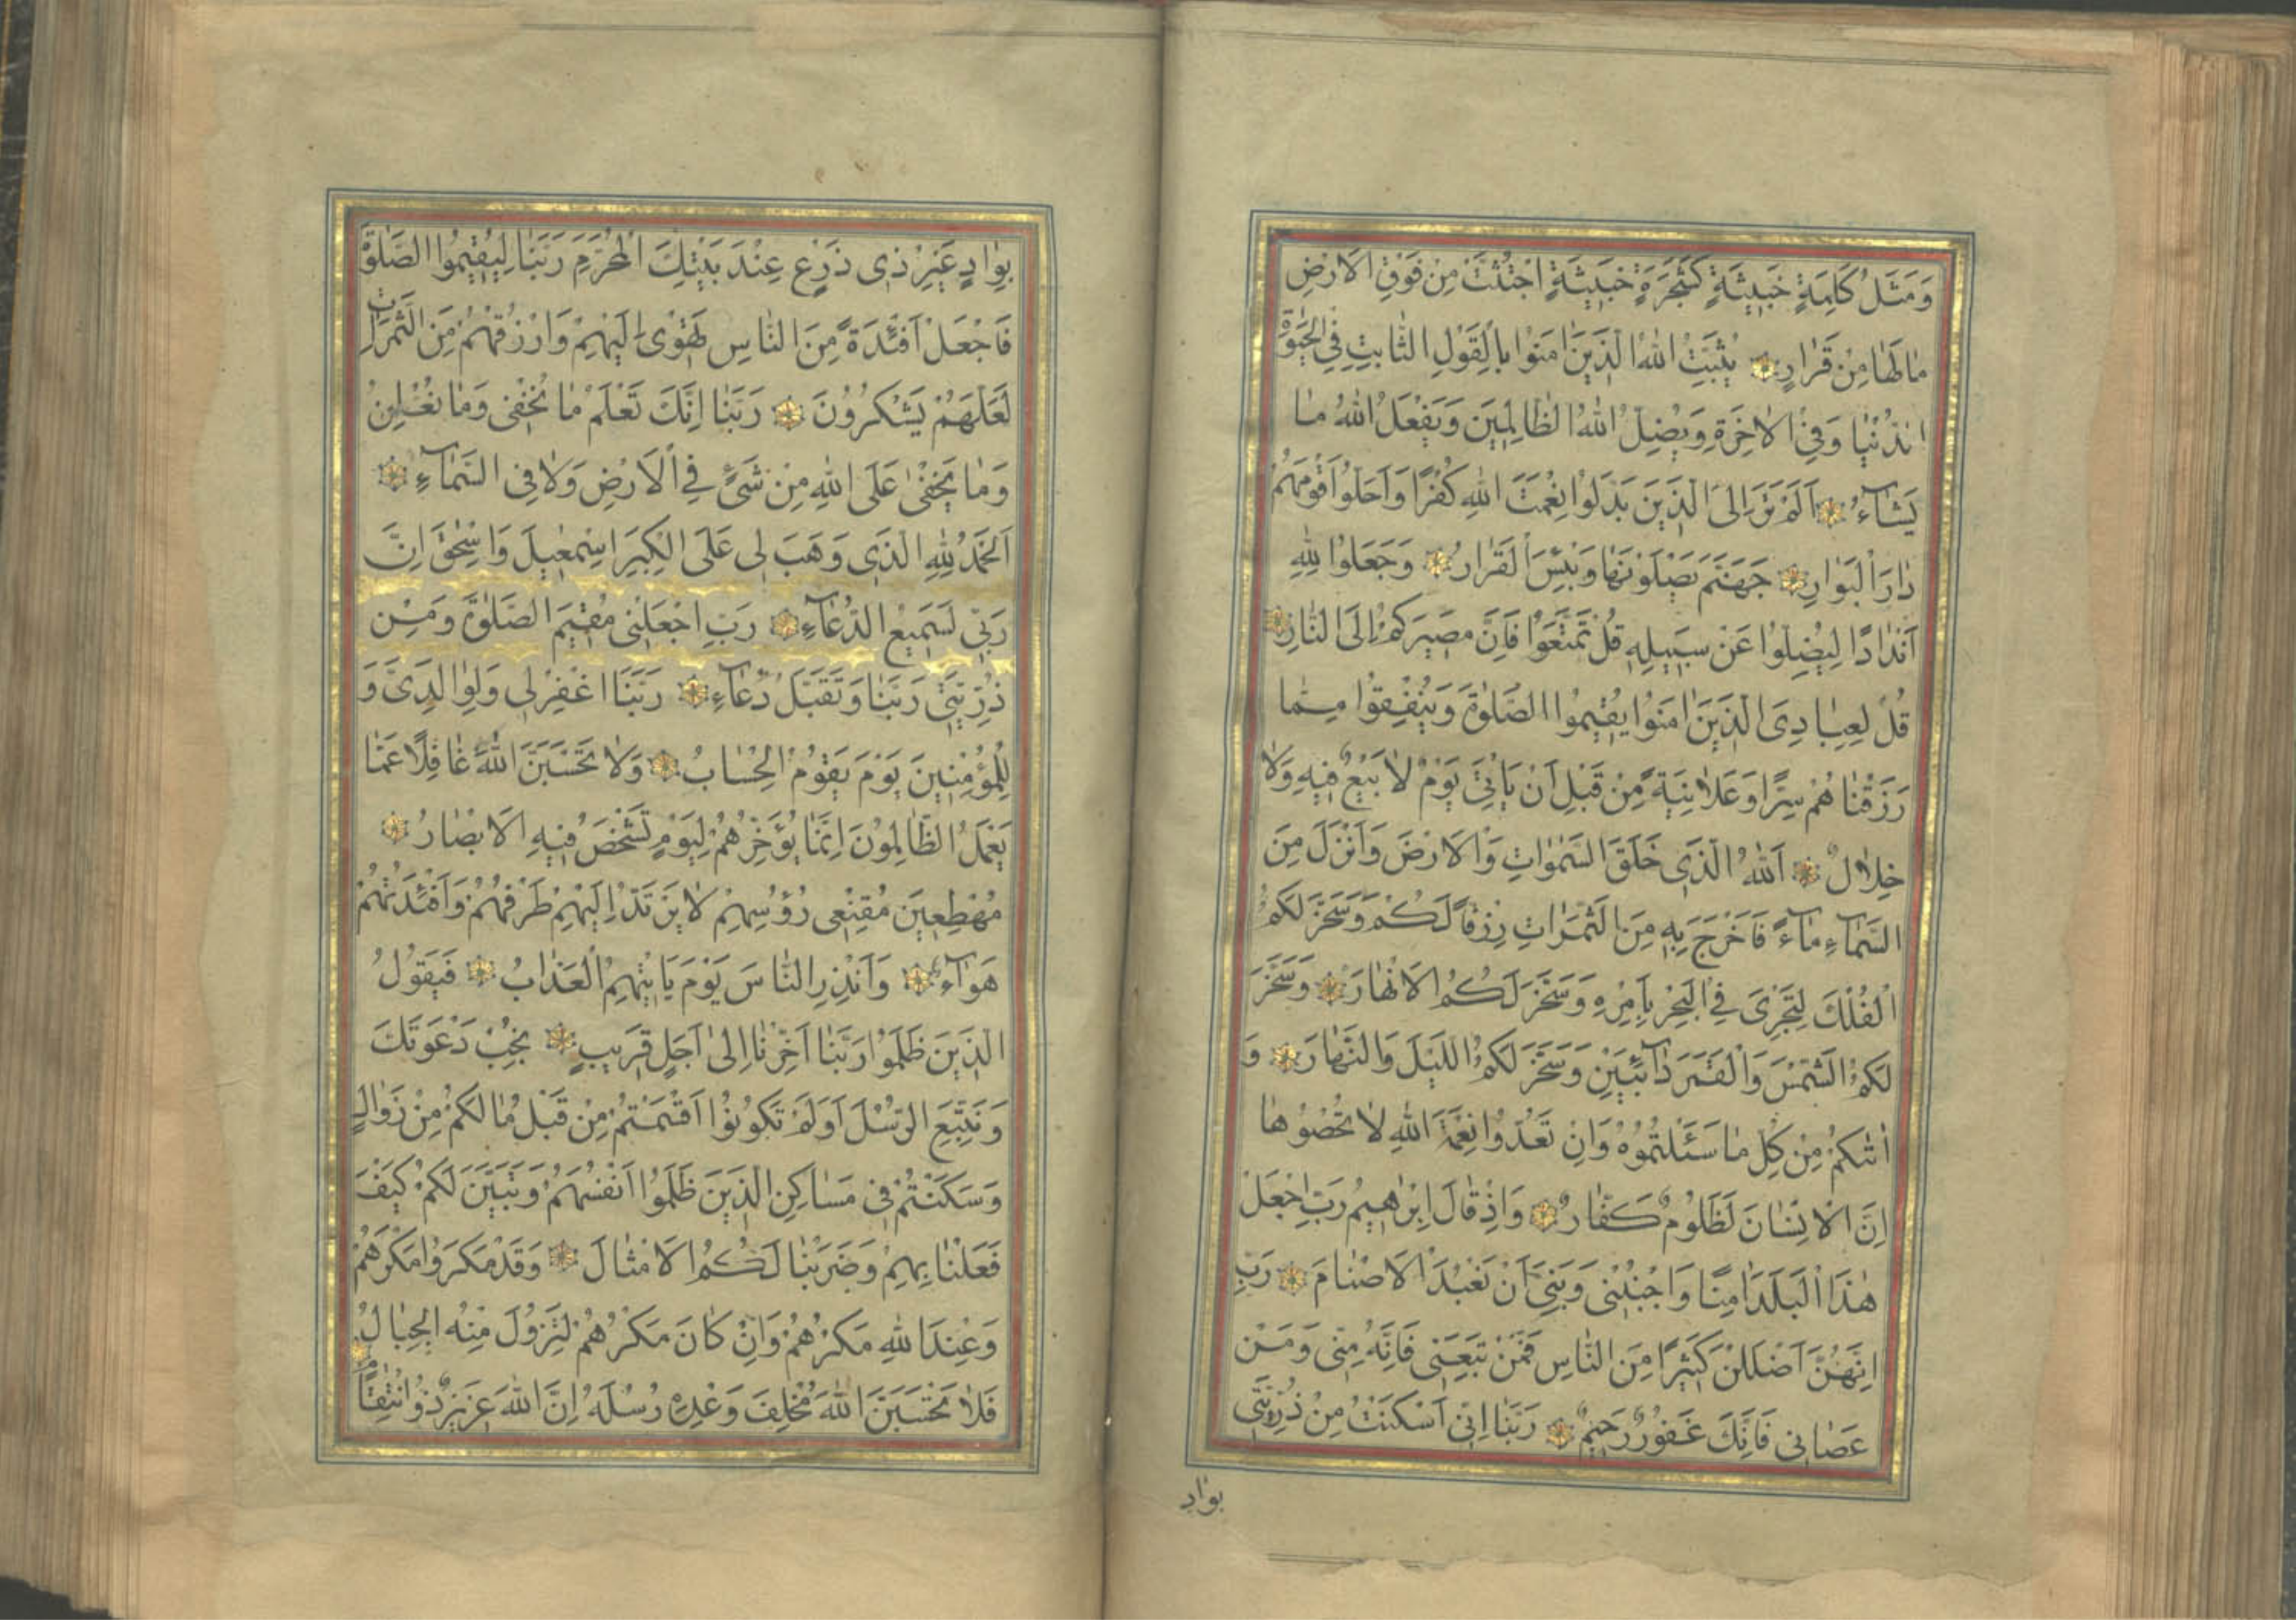 وَمَثَلُ كَلِمَةٍ خَبِيثَةٍ كَشَجَرَةٍ خَبِيثَةٍ اجْتُثَّتْ مِنْ فَوْقِ الْاَرْضِ
مَا لَهَا مِنْ قَرَارٍ يُثَبِّتُ اللّٰهُ الَّذِينَ اٰمَنُوا بِالْقَوْلِ الثَّابِتِ فِي الْحَيٰوةِ
الدُّنْيَا وَفِي الْاٰخِرَةِ وَيُضِلُّ اللّٰهُ الظَّالِمِينَ وَيَفْعَلُ اللّٰهُ مَا
يَشَآءُ اَلَمْ تَرَ اِلَى الَّذِينَ بَدَّلُوا نِعْمَتَ اللّٰهِ كُفْرًا وَاَحَلُّوا قَوْمَهُمْ
دَارَ الْبَوَارِ جَهَنَّمَ يَصْلَوْنَهَا وَبِئْسَ الْقَرَارُ وَجَعَلُوا لِلّٰهِ
اَنْدَادًا لِيُضِلُّوا عَنْ سَبِيلِهِ قُلْ تَمَتَّعُوا فَاِنَّ مَصِيرَكُمْ اِلَى النَّارِ
قُلْ لِعِبَادِيَ الَّذِينَ اٰمَنُوا يُقِيمُوا الصَّلٰوةَ وَيُنْفِقُوا مِمَّا
رَزَقْنَاهُمْ سِرًّا وَعَلَانِيَةً مِنْ قَبْلِ اَنْ يَاْتِيَ يَوْمٌ لَا بَيْعٌ فِيهِ وَلَا
خِلَالٌ اَللّٰهُ الَّذِي خَلَقَ السَّمٰوَاتِ وَالْاَرْضَ وَاَنْزَلَ مِنَ
السَّمَآءِ مَآءً فَاَخْرَجَ بِهِ مِنَ الثَّمَرَاتِ رِزْقًا لَكُمْ وَسَخَّرَ لَكُمُ
الْفُلْكَ لِتَجْرِيَ فِي الْبَحْرِ بِاَمْرِهِ وَسَخَّرَ لَكُمُ الْاَنْهَارَ وَسَخَّرَ
لَكُمُ الشَّمْسَ وَالْقَمَرَ دَآئِبَيْنِ وَسَخَّرَ لَكُمُ اللَّيْلَ وَالنَّهَارَ وَ
اٰتٰىكُمْ مِنْ كُلِّ مَا سَئَلْتُمُوهُ وَاِنْ تَعُدُّوا نِعْمَةَ اللّٰهِ لَا تُحْصُوهَا
اِنَّ الْاِنْسَانَ لَظَلُومٌ كَفَّارٌ وَاِذْ قَالَ اِبْرٰهِيمُ رَبِّ اجْعَلْ
هٰذَا الْبَلَدَ اٰمِنًا وَاجْنُبْنِي وَبَنِيَّ اَنْ نَعْبُدَ الْاَصْنَامَ رَبِّ
اِنَّهُنَّ اَضْلَلْنَ كَثِيرًا مِنَ النَّاسِ فَمَنْ تَبِعَنِي فَاِنَّهُ مِنِّي وَمَنْ
عَصَانِي فَاِنَّكَ غَفُورٌ رَحِيمٌ رَبَّنَا اِنِّي اَسْكَنْتُ مِنْ ذُرِّيَّتِي
بِوَادٍ
بِوَادٍ غَيْرِ ذِي زَرْعٍ عِنْدَ بَيْتِكَ الْمُحَرَّمِ رَبَّنَا لِيُقِيمُوا الصَّلٰوةَ
فَاجْعَلْ اَفْئِدَةً مِنَ النَّاسِ تَهْوِي اِلَيْهِمْ وَارْزُقْهُمْ مِنَ الثَّمَرَاتِ
لَعَلَّهُمْ يَشْكُرُونَ رَبَّنَا اِنَّكَ تَعْلَمُ مَا نُخْفِي وَمَا نُعْلِنُ
وَمَا يَخْفٰى عَلَى اللّٰهِ مِنْ شَيْءٍ فِي الْاَرْضِ وَلَا فِي السَّمَآءِ
اَلْحَمْدُ لِلّٰهِ الَّذِي وَهَبَ لِي عَلَى الْكِبَرِ اِسْمٰعِيلَ وَاِسْحٰقَ اِنَّ
رَبِّي لَسَمِيعُ الدُّعَآءِ رَبِّ اجْعَلْنِي مُقِيمَ الصَّلٰوةِ وَمِنْ
ذُرِّيَّتِي رَبَّنَا وَتَقَبَّلْ دُعَآءِ رَبَّنَا اغْفِرْ لِي وَلِوَالِدَيَّ وَ
لِلْمُؤْمِنِينَ يَوْمَ يَقُومُ الْحِسَابُ وَلَا تَحْسَبَنَّ اللّٰهَ غَافِلًا عَمَّا
يَعْمَلُ الظَّالِمُونَ اِنَّمَا يُؤَخِّرُهُمْ لِيَوْمٍ تَشْخَصُ فِيهِ الْاَبْصَارُ
مُهْطِعِينَ مُقْنِعِي رُؤُسِهِمْ لَا يَرْتَدُّ اِلَيْهِمْ طَرْفُهُمْ وَاَفْئِدَتُهُمْ
هَوَآءٌ وَاَنْذِرِ النَّاسَ يَوْمَ يَاْتِيهِمُ الْعَذَابُ فَيَقُولُ
الَّذِينَ ظَلَمُوا رَبَّنَا اَخِّرْنَا اِلٰى اَجَلٍ قَرِيبٍ نُجِبْ دَعْوَتَكَ
وَنَتَّبِعِ الرُّسُلَ اَوَلَمْ تَكُونُوا اَقْسَمْتُمْ مِنْ قَبْلُ مَا لَكُمْ مِنْ زَوَالٍ
وَسَكَنْتُمْ فِي مَسَاكِنِ الَّذِينَ ظَلَمُوا اَنْفُسَهُمْ وَتَبَيَّنَ لَكُمْ كَيْفَ
فَعَلْنَا بِهِمْ وَضَرَبْنَا لَكُمُ الْاَمْثَالَ وَقَدْ مَكَرُوا مَكْرَهُمْ
وَعِنْدَ اللّٰهِ مَكْرُهُمْ وَاِنْ كَانَ مَكْرُهُمْ لِتَزُولَ مِنْهُ الْجِبَالُ
فَلَا تَحْسَبَنَّ اللّٰهَ مُخْلِفَ وَعْدِهِ رُسُلَهُ اِنَّ اللّٰهَ عَزِيزٌ ذُو انْتِقَامٍ